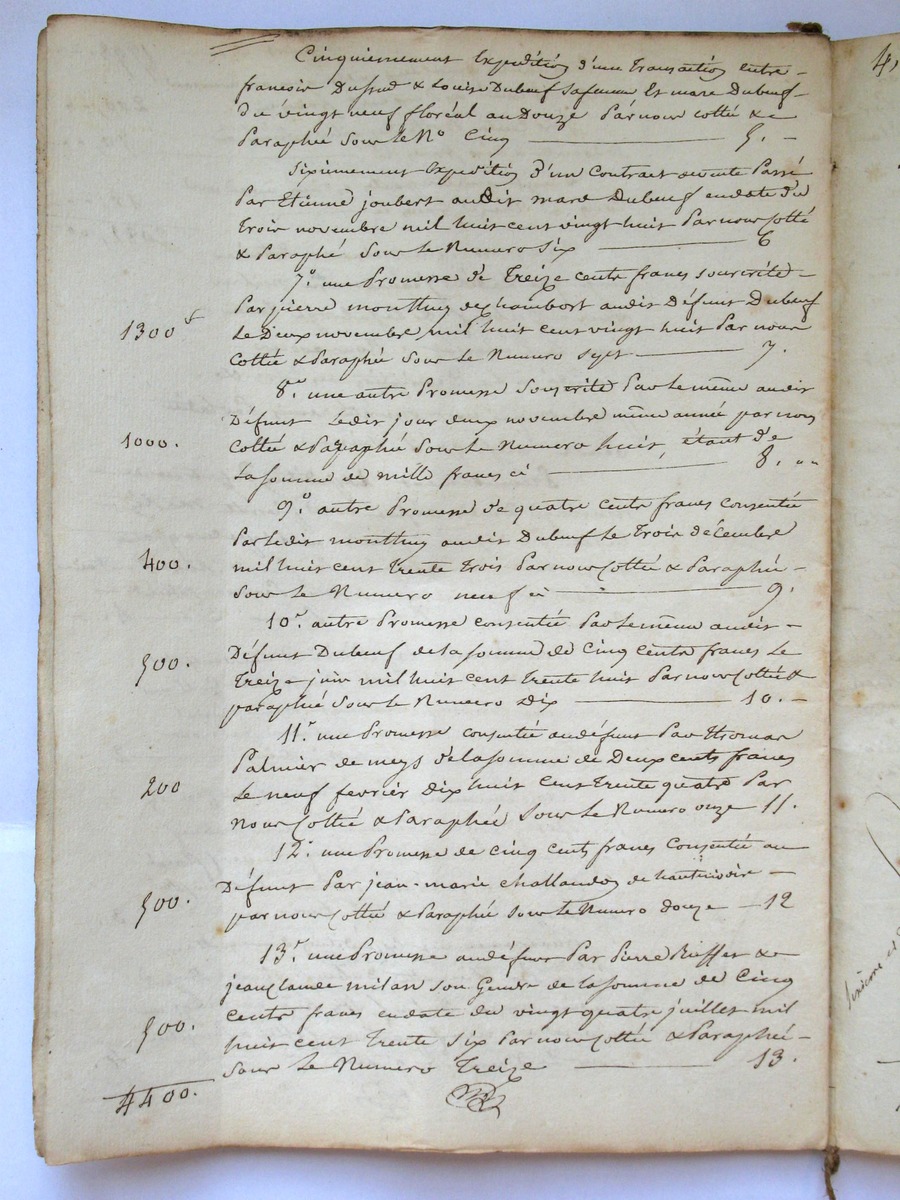 Cinquiemement Expedition d'une Transaction entre
francois Dussud & Louise Dubeuf sa femme Et marc Dubeuf
du vingt neuf floréal an Douze Par nous cotté &
Paraphé Sous le No Cinq 5.
Sixiemement Expedition d'un Contrat de vente Passé
Par Etienne joubert audit marc Dubeuf en date du
Trois novembre mil huit cent vingt huit Par nous Cotté
& Paraphé Sous le Numero Six 6
7.o une Promesse de Treize cents francs souscrite
Par pierre montlluy audit Défunt Dubeuf
1300 f Le Deux novembre mil huit cent vingt huit Par nous
Cottée & Paraphée Sous le Numero sept 7.
8.o une autre Promesse Souscrite Par le même audit
Défunt Ledit jour deux novembre même année par nous
1000. Cottée & Paraphée Sous le Numero huit, étant de
La somme de mille francs ci 8.
9.o autre Promesse de quatre cents francs Consentie
Par ledit montlluy audit Dubeuf Le Trois décembre
400. mil huit cent trente trois Par nous Cottée & Paraphée
Sous le Numero neuf ci 9.
10.o autre Promesse consentie Par le même audit
500. Défunt Dubeuf de la somme de Cinq Cents francs Le
Treize juin mil huit cent trente huit Par nous Cottée &
paraphée Sous le Numero Dix 10.
11.o une Promesse consentie au défunt Par Thomas
Palmier de meys de la somme de Deux cents francs
200 Le neuf fevrier Dix huit Cent trente quatre Par
Nous Cottée & Paraphée Sous le Numero onze 11.
12.o une Promesse de Cinq cents francs Consentie au
Défunt Par jean-marie challandon de
500. par nous Cottée & Paraphée sous le Numero douze 12
13.o une Promesse au défunt Par Pierre &
jean Claude milan son Gendre de la somme de Cinq
Cents francs en date du vingt quatre juillet mil
500. huit cent trente Six Par nous Cottée & Paraphée
Sous le Numero Treize 13.
4400.